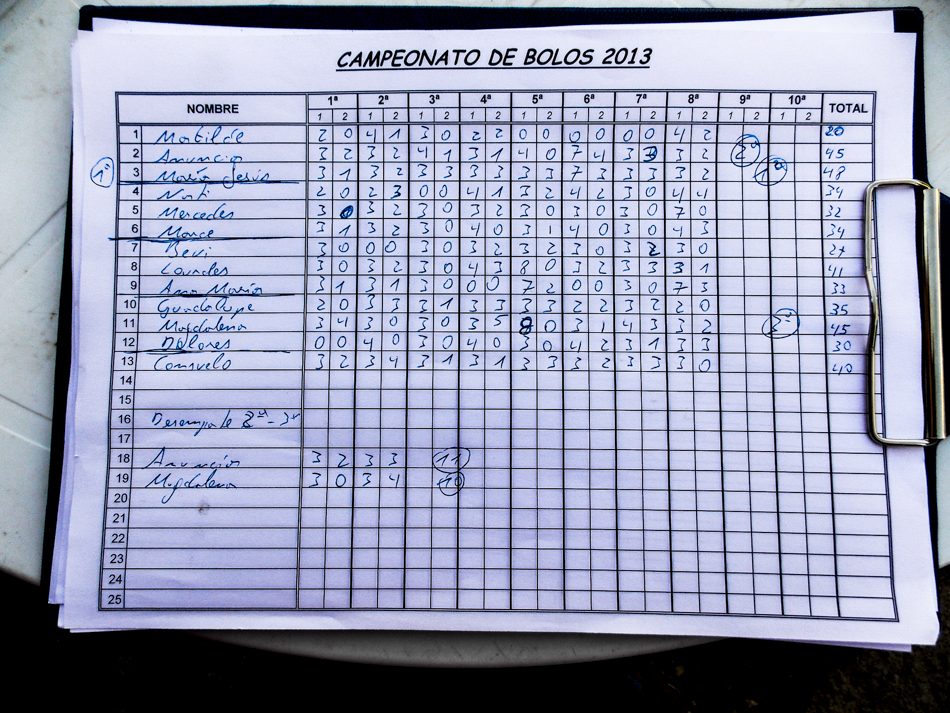 CAMPEONATO DE BOLOS 2013
NOMBRE 1ª 2ª 3ª 4ª 5ª 6ª 7ª 8ª 9ª 10ª TOTAL
1 2 1 2 1 2 1 2 1 2 1 2 1 2 1 2 1 2 1 2
1 Matilde 2 0 4 1 3 0 2 2 0 0 0 0 0 0 4 2 20
2 Anuncio 3 2 3 2 4 1 3 1 4 0 7 4 3 3 3 2 2º 45
1º 3 María Jesús 3 1 3 2 3 3 3 3 3 3 7 3 3 3 3 2 1º 48
4 2 0 2 3 0 0 4 1 3 2 4 2 3 0 4 4 34
5 Mercedes 3 0 3 2 3 0 3 2 3 0 3 0 3 0 7 0 32
6 Monce 3 1 3 2 3 0 4 0 3 1 4 0 3 0 4 3 34
7 Bevi 3 0 0 0 3 0 3 2 3 2 3 0 3 2 3 0 27
8 Lourdes 3 0 3 2 3 0 4 3 8 0 3 2 3 3 3 1 41
9 Ana María 3 1 3 1 3 0 0 0 7 2 0 0 3 0 7 3 33
10 Guadalupe 2 0 3 3 3 1 3 3 3 3 2 2 3 2 2 0 35
11 Magdalena 3 4 3 0 3 0 3 5 8 0 3 1 4 3 3 2 3º 45
12 Dolores 0 0 4 0 3 0 4 0 3 0 4 2 3 1 3 3 30
13 Consuelo 3 2 3 4 3 1 3 1 3 3 3 2 3 3 3 0 40
14
15
16 Desempate 2º - 3º
17
18 Anuncios 3 2 3 3 11
19 Magdalena 3 0 3 4 10
20
21
22
23
24
25